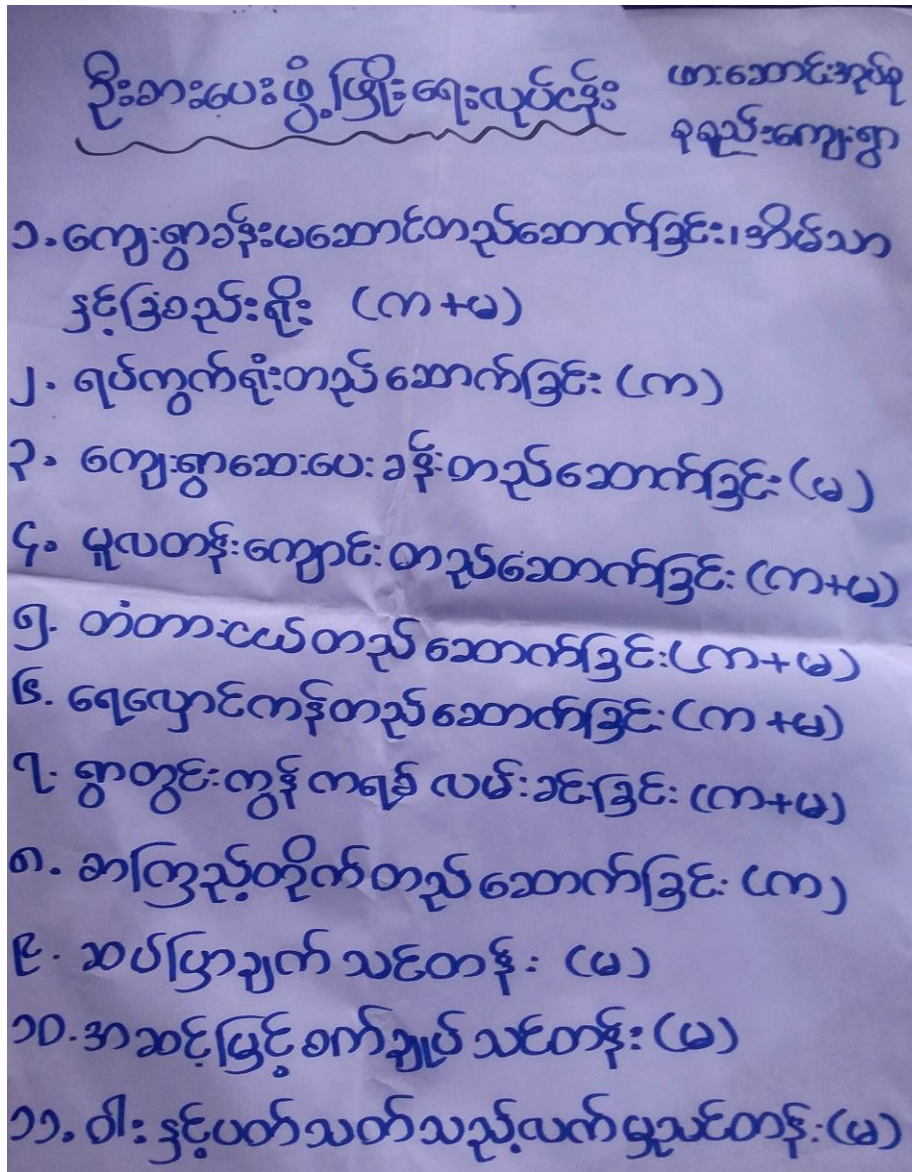 ဦးစားပေးဖွံ့ဖြိုးရေးလုပ်ငန်း
ဖားဆောင်းအုပ်စု
စုရည်းကျေးရွာ
၁. ကျေးရွာခန်းမဆောင်တည်ဆောက်ခြင်း၊ အိမ်သာ
နှင့်ခြံစည်းရိုး (က+မ)
၂. ရပ်ကွက်ရုံးတည်ဆောက်ခြင်း (က)
၃. ကျေးရွာဆေးပေးခန်းတည်ဆောက်ခြင်း (မ)
၄. မူလတန်းကျောင်းတည်ဆောက်ခြင်း (က+မ)
၅. တံတားငယ်တည်ဆောက်ခြင်း (က+မ)
၆. ရေလှောင်ကန်တည်ဆောက်ခြင်း (က+မ)
၇. ရွာတွင်းကွန်ကရစ်လမ်းခင်းခြင်း (က+မ)
၈. စာကြည့်တိုက်တည်ဆောက်ခြင်း (က)
၉. ဆပ်ပြာချက်သင်တန်း (မ)
၁၀. အဆင့်မြင့်စက်ချုပ်သင်တန်း (မ)
၁၁. ဝါးနှင့်ပတ်သတ်သည့်လက်မှုသင်တန်း (မ)